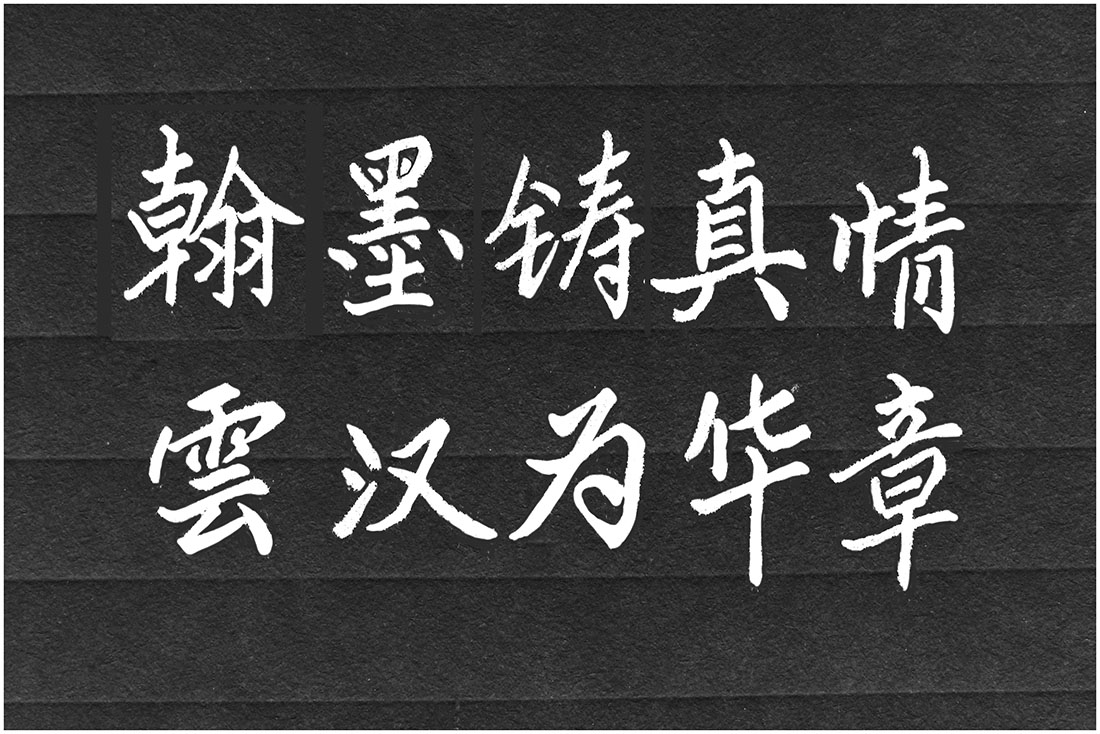 翰墨铸真情
雲汉为华章